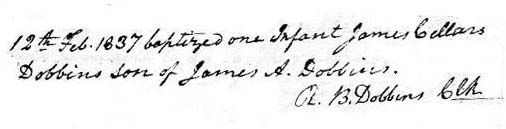 12th Feb. 1837 baptized one Infant James Cellars
Dobbins son of James A. Dobbins.
R. B. Dobbins Clk